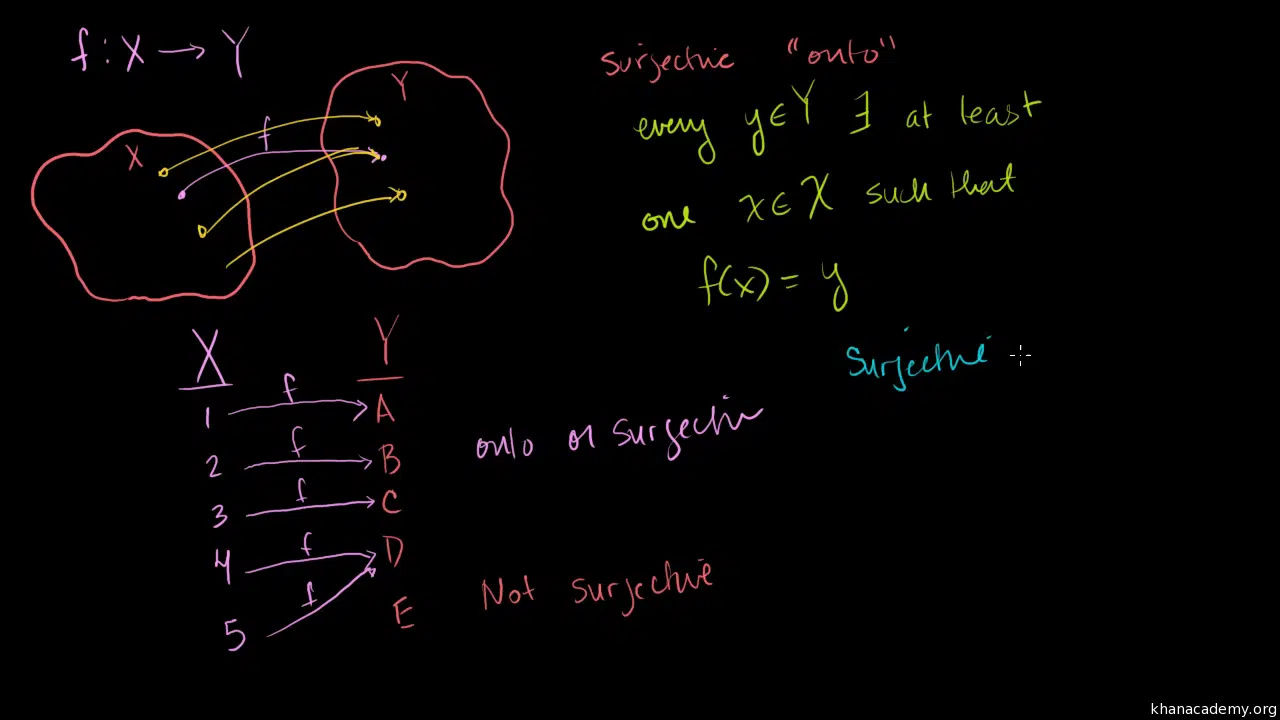 f : X → Y
surjective "onto"
every y ∈ Y ∃ at least
one x ∈ X such that
f(x) = y
X
f
Y
surjective
X Y
1 f A
2 f B
3 f C
4 f D
5 f E
onto or surjective
Not surjective
khanacademy.org